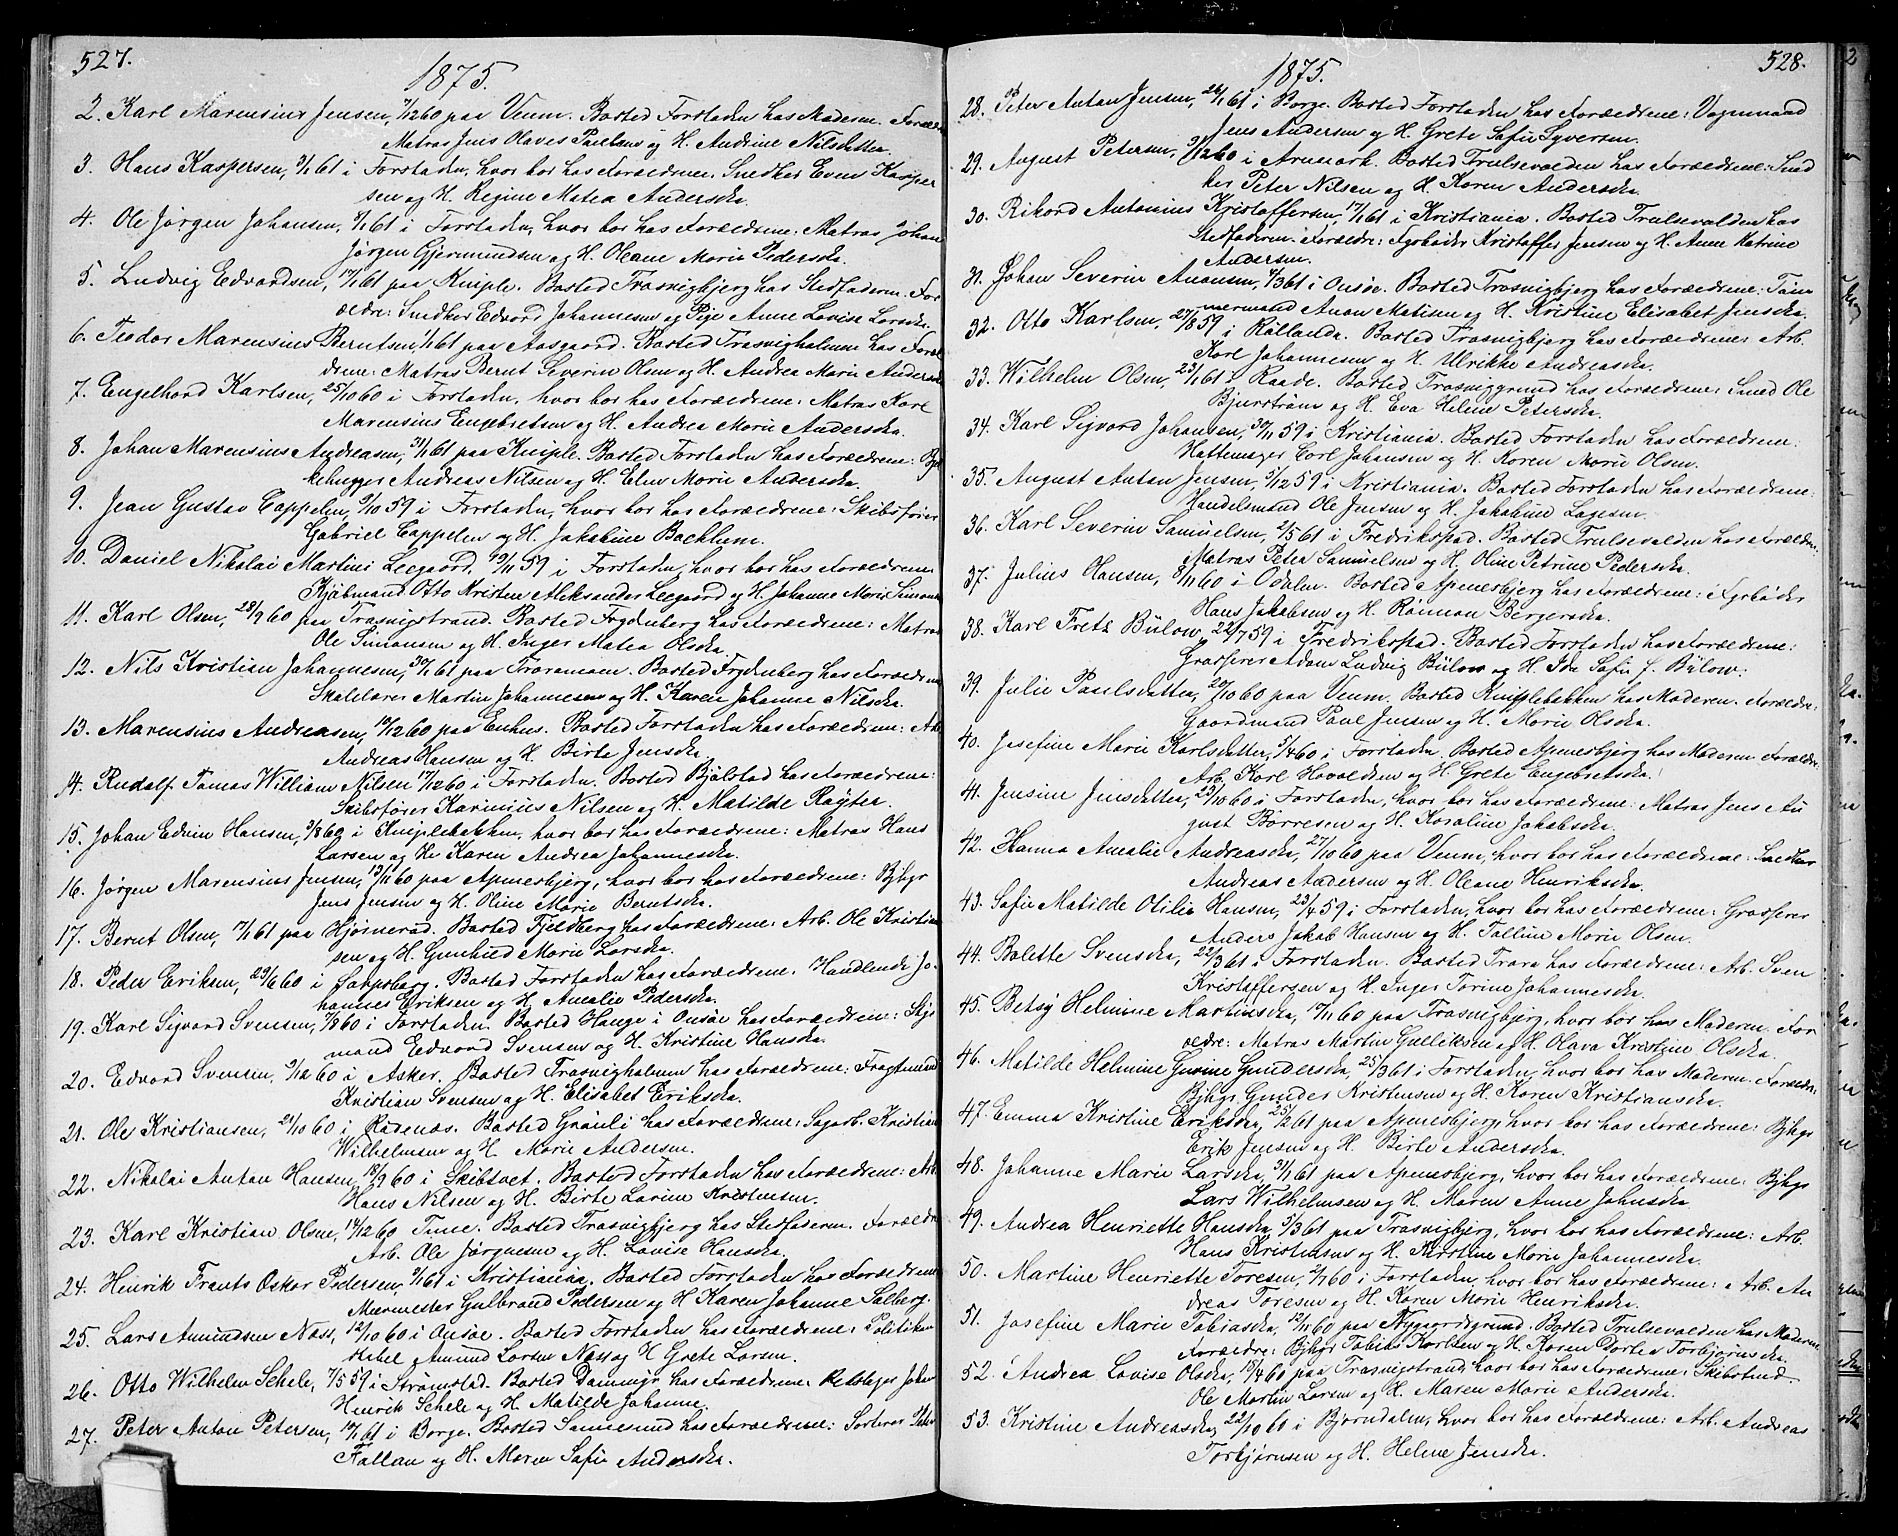 527.
1875.
2. Karl Marensius Jensen, 7/1260 paa Venm. Bosted Forstaden hos Moderen. Forældre
Matros Jens Olaves Paulsen og H. Andrine Nilsdatter.
3. Hans Kaspersen, 3/161 i Forstaden, hvor bor hos Forældrene: Snedker Even Kasper
sen og H. Regine Matea Andersda.
4. Ole Jørgen Johansen, 8/161 i Forstaden, hvor bor hos Forældrene: Matros Johan
Jørgen Gjermundsen og H. Oleane Marie Pedersda.
5. Ludvig Edvardsen, 17/161 paa Kniple. Bosted Trosvigbjerg hos Stedfaderen. For
ældre: Snedker Edvard Johannesen og Pige Anne Lovise Larsda.
6. Teodor Marensius Berntsen, 1/161 paa Aasgaard. Bosted Trosvigholmen hos Foræl
drene: Matros Bernt Severin Olsen og H. Andrea Marie Andersda
7. Engelhard Karlsen, 25/1060 i Forstaden, hvor bor hos Forældrene: Matros Karl
Marensius Engebretsen og H. Andrea Marie Andersda.
8. Johan Marensius Andreasen, 31/161 paa Kniple. Bosted Forstaden hos Forældrene: Blok
kehugger Andreas Nilsen og H. Elen Marie Andersda.
9. Jean Gustav Cappelen, 9/1059 i Forstaden, hvor bor hos Forældrene: Skibsfører
Gabriel Cappelen og H. Jakobine Bockhem.
10. Daniel Nikolai Martini Leegaard, 19/1159 i Forstaden, hvor bor hos Forældrene
Kjøbmand Otto Kristen Aleksander Leegaard og H. Johanne Marie Simonsen
11. Karl Olsen, 28/960 paa Trosvigstrand. Bosted Frydenberg hos Forældrene: Matros
Ole Simonsen og H. Inger Matea Olsda.
12. Nils Kristian Johannesen, 30/161 paa Traramoen. Bosted Frydenberg hos Forældrene
Skolelærer Martin Johannesen og H. Karen Johanne Nilsda.
13. Marensius Andreasen, 10/1260 paa Enhus. Bosted Forstaden hos Forældrene: Arb.
Andreas Hansen og H. Birte Jensda.
14. Rudolf Tomas William Nilsen 17/1260 i Forstaden. Bosted Bjølstad hos Forældrene:
Skibsfører Karinius Nilsen og H. Matilde Røyter.
15. Johan Edvin Hansen, 3/860 i Kniplebakken, hvor bor hos Forældrene: Matros Hans
Larsen og H. Karen Andrea Johannesda.
16. Jørgen Marensius Jensen, 13/1160 paa Apenesbjerg, hvor bor hos Forældrene: Bjhgr
Jens Jensen og H. Oline Marie Berntsda.
17. Bernt Olsen, 17/161 paa Hjørnerød. Bosted Fjeldberg hos Forældrene: Arb. Ole Kristian
sen og H. Gunhild Marie Larsda.
18. Peder Eriksen, 29/660 i Sarpsborg. Bosted Forstaden hos Forældrene. Handlende Jo
hannes Eriksen og H. Amalie Pedersda.
19. Karl Sigvard Svensen, 7/860 i Forstaden. Bosted Hauge i Onsøe hos Forældrene:
mand Edvard Svensen og H. Kristine Hansda.
20. Edvard Svensen, 2/1260 i Asker. Bosted Trosvigholmen hos Forældrene: Fragtmand
Kristian Svensen og H. Elisabet Eriksda.
21. Ole Kristiansen, 21/1060 i Rødenæs. Bosted Grønli hos Forældrene: Sagarb. Kristian
Wilhelmsen og H. Marie Andersen.
22. Nikolai Anton Hansen, 18/960 i Skibtvet. Bosted Forstaden hos Forældrene: Arb
Hans Nilsen og H. Birte Larine Kristensen.
23. Karl Kristian Olsen, 17/1260 Tune. Bosted Trosvigbjerg hos Stedfaderen. Forældre
Arb. Ole Jørgensen og H. Lovise Hansda.
24. Henrik Frants Oskar Pedersen, 2/161 i Kristiania. Bosted Forstaden hos Forældrene
Murmester Gulbrand Pedersen og H Karen Johanne Solberg.
25. Lars Amundsen Næss, 12/1060 i Onsøe. Bosted Forstaden hos Forældrene: Politikon
stabel Amund Larsen Næss og H Grete Larsen.
26. Otto Wilhelm Schele, 7/559 i Strømstad. Bosted Damnigs hos Forældrene: Rebslager Johan
Henrik Schele og H. Matilde Johanne.
27. Peter Anton Petersen, 17/161 i Borge. Bosted Sannesund hos Forældrene: Sorterer Peter
Fallan og H. Maren Sofie Andersda.
528.
1875.
28. Peter Anton Jensen, 26/161 i Borge. Bosted Forstaden hos Forældrene: Vognmand
Jens Andersen og H. Grete Sofie Syversen.
29. August Petersen, 3/1260 i Aremark. Bosted Trulsevolden hos Forældrene: Sned
ker Peter Nilsen og H. Karen Andersda.
30. Rikard Antonius Kristoffersen, 17/161 i Kristiania. Bosted Trulsevolden hos
Stedfaderen. Forældre: Fyrbøder Kristoffer Jensen og H. Anne Katrine
Andersen.
31. Johan Severin Anansen, 4/361 i Onsøe. Bosted Trosvigbjerg hos Forældrene: Tøm
mermand Anan Matisen og H. Kristine Elisabet Jensda.
32. Otto Karlsen, 27/859 i Rållanda. Bosted Trosvigbjerg hos Forældrene: Arb.
Karl Johannesen og H. Ulrikke Andreasda.
33. Wilhelm Olsen, 23/161 i Raade. Bosted Trosviggrund hos Forældrene: Smed Ole
Bjurstrøm og H. Eva Helene Petersda.
34. Karl Sigvard Johansen, 30/1159 i Kristiania. Bosted Forstaden hos Forældrene:
Hattemager Carl Johansen og H. Karen Marie Olsen.
35. August Anton Jensen, 5/1259 i Kristiania. Bosted Forstaden hos Forældrene:
Handelsmand Ole Jensen og H. Jakobine Lagesen.
36. Karl Severin Samuelsen, 2/561 i Fredrikstad. Bosted Trulsevolden hos Forældre:
Matros Peter Samuelsen og H. Oline Petrine Pedersda.
37. Julius Hansen, 8/1160 i Odalen. Bosted Apenesbjerg hos Forældrene: Fyrbøder
Hans Jakobsen og H. Rønnau Bergersda.
38. Karl Fretz Bülow, 22/759 i Fredrikstad. Bosted Forstaden hos Forældrene:
Grosserer Adam Ludvig Bülow og H. Ida Sofie f. Bülow.
39. Julie Paulsdatter, 20/1060 paa Venm. Bosted Kniplebakken hos Moderen. Forældre:
Gaardmand Paul Jensen og H. Marie Olsda.
40. Josefine Marie Karlsdatter, 5/460 i Forstaden. Bosted Apenesbjerg hos Moderen. Forældre:
Arb. Karl Havaldsen og H. Grete Engebretsda.
41. Jensine Jensdatter, 23/1060 i Forstaden, hvor bor hos Forældrene: Matros Jens Au
gust Børresen og H. Karoline Jakobsda.
42. Hanna Amalie Andreasda, 27/1060 paa Venm, hvor bor hos Forældrene: Snedker
Andreas Andersen og H. Oleane Henriksda.
43. Sofie Matilde Otilie Hansen, 23/459 i Forstaden, hvor bor hos Forældrene: Grosserer
Anders Jakob Hansen og H. Talline Marie Olsen.
44. Bolette Svensda, 22/361 i Forstaden. Bosted Trara hos Forældrene: Arb. Sven
Kristoffersen og H. Inger Torine Johannesda.
45. Betsy Helmine Martinsda, 17/1160 paa Trosvigbjerg, hvor bor hos Moderen. For
ældre: Matros Martin Gulliksen og H. Olava Kristine Olsda.
46. Matilde Helmine Gurine Gundersda, 25/361 i Forstaden, hvor bor hos Moderen. Forældre:
Bjhgr Gunder Kristensen og H. Karen Kristiansda.
47. Emma Kristine Eriksda, 25/261 paa Apenesbjerg, hvor bor hos Forældrene: Bjhgr
Erik Jensen og H. Birte Andersda.
48. Johanne Marie Larsda, 31/161 paa Apenesbjerg, hvor bor hos Forældrene: Bjhgr
Lars Wilhelmsen og H. Maren Anne Johnsda
49. Andrea Henriette Hansda, 5/361 paa Trosvigbjerg, hvor bor hos Forældrene: Arb.
Hans Kristensen og H. Kirstine Marie Johannesda.
50. Martine Henriette Toresen, 2/760 i Forstaden, hvor bor hos Forældrene: Arb. An
dreas Toresen og H. Karen Marie Henriksda.
51. Josefine Marie Tobiasda, 12/1160 paa Nygaardsgrund. Bosted Trulsevolden hos Moderen
Forældre: Bjhgr Tobias Karlsen og H. Karen Dortea Torbjørnsda.
52. Andrea Lovise Olsda, 15/460 paa Trosvigstrand, hvor bor hos Forældrene: Skibstmd.
Ole Martin Larsen og H. Maren Marie Andersda.
53. Kristine Andreasda, 22/1060 i Bjørndalen, hvor bor hos Forældrene: Arb. Andreas
Torkjørnsen og H. Helene Jensda.